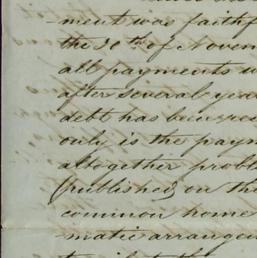 ment was faithf
the 30th of Novem
all payments w
after several year
debt has been
only is the paym
altogether probl
(published) on the
common home
matic arrangem